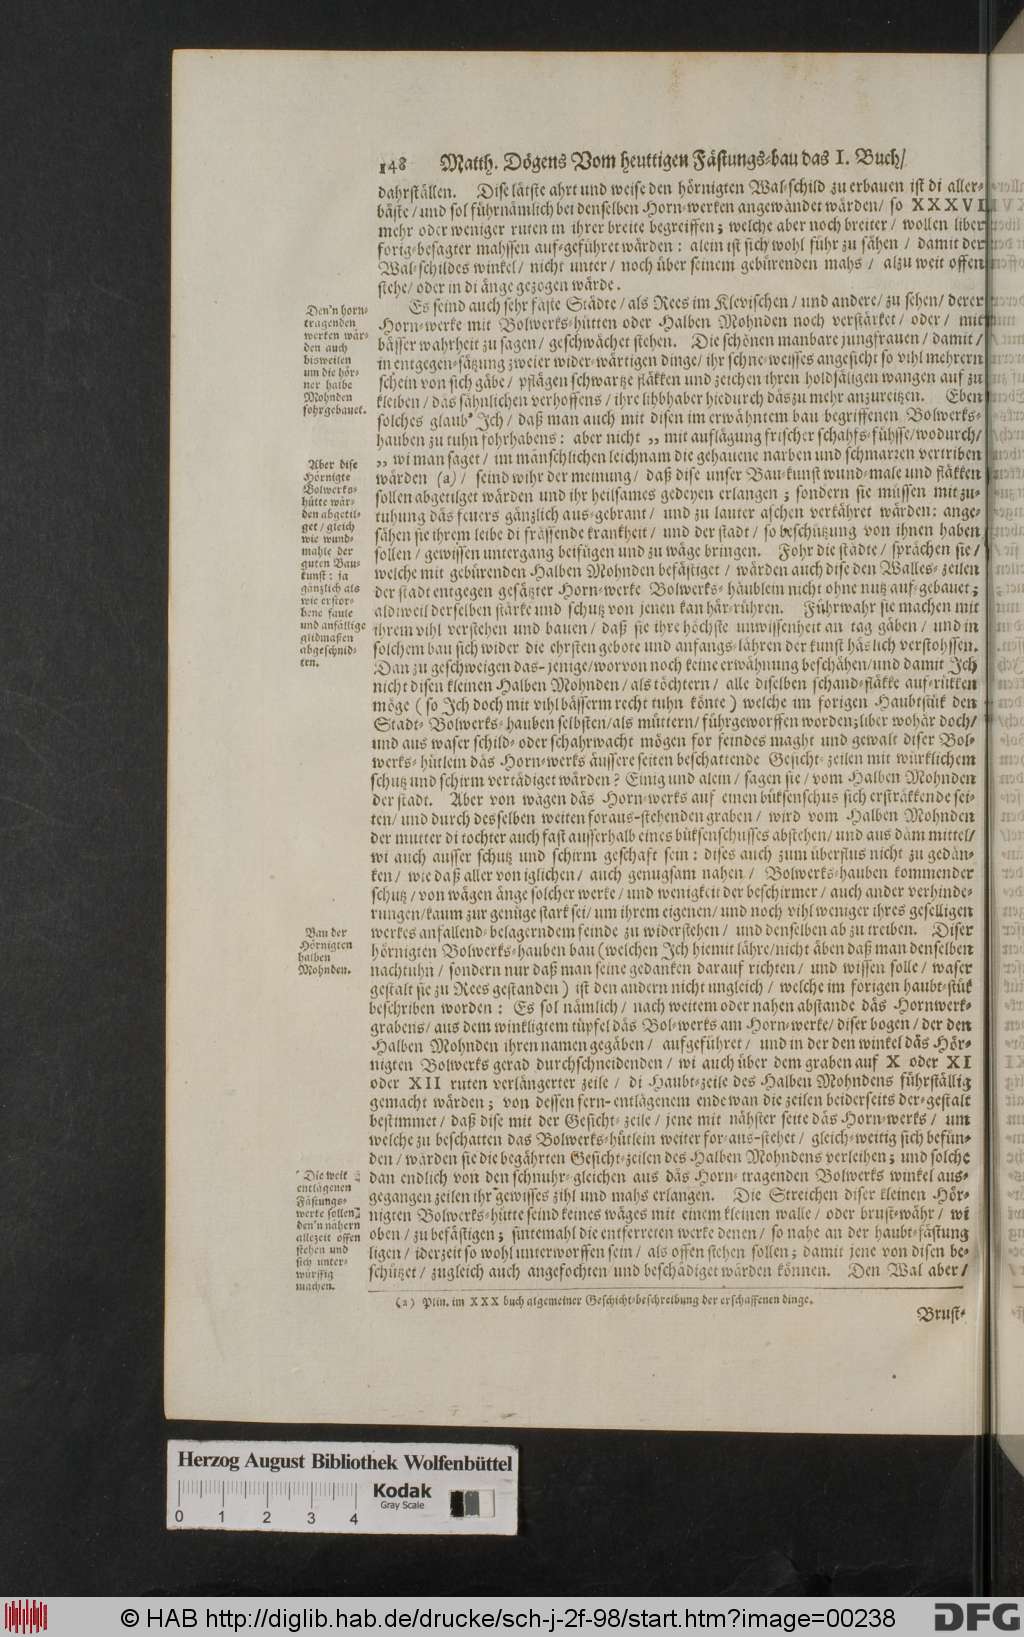 148 Matth. Dögens Vom heuttigen Fästungs-bau das I. Buch/
dahrställen. Dise lätste ahrt und weise den hörnigten Wal-schild zu erbauen ist di aller-
bäste/ und sol führnämlich bei denselben Horn-werken angewändet wärden/ so XXXVI
mehr oder weniger ruten in ihrer breite begreiffen; welche aber noch breiter/ wollen liber
forig-besagter mahssen auf-geführet wärden: alein ist sich wohl führ zu sähen/ damit der
Wal-schildes winkel/ nicht unter/ noch über seinem gebürenden mahs/ alzu weit offen
stehe/ oder in di änge gezogen wärde.
Den'n horn-
tragenden
werken wär-
den auch
bisweilen
um die hör-
ner halbe
Mohnden
fohrgebauet.
Es seind auch sehr faste Städte/ als Rees im Klevischen/ und andere/ zu sehen/ derer
Horn-werke mit Bolwerks-hütten oder Halben Mohnden noch verstärket/ oder/ mit
bässer wahrheit zu sagen/ geschwächet stehen. Die schönen manbare jungfrauen/ damit/
in entgegen-sätzung zweier wider-wärtigen dinge/ ihr schne-weisses angesicht so vihl mehrern
schein von sich gäbe/ pflägen schwartze fläkken und zeichen ihren holdsäligen wangen auf zu
kleiben/ das sähnlichen verhoffens/ ihre libhaber hiedurch däs zu mehr anzureitzen. Eben
solches glaub' Ich/ daß man auch mit disen im erwähntem bau begriffenen Bolwerks-
hauben zu tuhn fohrhabens: aber nicht „ mit auflägung frischer schahfs-fühsse/ wodurch/
„ wi man saget/ im mänschlichen leichnam die gehauene narben und schmarren vertriben
wärden (a)/ seind wihr der meinung/ daß dise unser Bau-kunst wund-male und fläkken
sollen abgetilget wärden und ihr heilsames gedeyen erlangen; sondern sie müssen mit zu-
tuhung däs feuers gänzlich aus-gebrant/ und zu lauter aschen verkähret wärden: ange-
sähen sie ihrem leibe di frässende krankheit/ und der stadt/ so beschützung von ihnen haben
sollen/ gewissen untergang beifügen und zu wäge bringen. Fohr die städte/ sprächen sie/
welche mit gebürenden Halben Mohnden befästiget/ wärden auch dise den Walles-zeilen
der stadt entgegen gesätzter Horn-werke Bolwerks-häublein nicht ohne nutz auf-gebauet;
aldiweil derselben stärke und schutz von jenen kan här-rühren. Führwahr sie machen mit
ihrem vihl verstehen und bauen/ daß sie ihre höchste unwissenheit an tag gäben/ und in
solchem bau sich wider die ehrsten gebote und anfangs-lähren der kunst häslich verstohssen.
Aber dise
Hörnigte
Bolwerks-
hütte wär-
den abgetil-
get/ gleich
wie wund-
mahle der
guten Bau-
kunst: ja
gänzlich als
wie erstor-
bene faule
und anfällige
glidmaßen
abgeschnid-
ten.
Dan zu geschweigen das-jenige/ worvon noch keine erwähnung beschähen/ und damit Ich
nicht disen kleinen Halben Mohnden/ als töchtern/ alle diselben schand-fläkke auf-rükken
möge (so Ich doch mit vihl bässerm recht tuhn könte) welche im forigen Haubtstük den
Stadt-Bolwerks-hauben selbsten/ als müttern/ führgeworffen worden; liber wohär doch/
und aus waser schild-oder schahrwacht mögen for feindes maght und gewalt diser Bol-
werks-hütlein däs Horn-werks äussere seiten beschattende Gesicht-zeilen mit würklichem
schutz und schirm vertädiget wärden? Einig und alein/ sagen sie/ vom Halben Mohnden
der stadt. Aber von wägen däs Horn-werks auf einen büksenschus sich ersträkkende sei-
ten/ und durch desselben weiten foraus-stehenden graben/ wird vom Halben Mohnden
der mutter di tochter auch fast ausserhalb eines büksenschusses abstehen/ und aus däm mittel/
wi auch ausser schutz und schirm geschaft sein: dises auch zum überflus nicht zu gedän-
ken/ wie daß aller von iglichen/ auch genugsam nahen/ Bolwerks-hauben kommender
schutz/ von wägen änge solcher werke/ und wenigkeit der beschirmer/ auch ander verhinde-
rungen/ kaum zur genüge stark sei/ um ihrem eigenen/ und noch vihl weniger ihres geselligen
werkes anfallend-belagerndem feinde zu widerstehen/ und denselben ab zu treiben. Diser
Bau der
Hörnigten
halben
Mohnden.
hörnigten Bolwerks-hauben bau (welchen Ich hiemit lähre/ nicht äben daß man denselben
nachtuhn/ sondern nur daß man seine gedanken darauf richten/ und wissen solle/ waser
gestalt sie zu Rees gestanden) ist den andern nicht ungleich/ welche im forigen haubt-stük
beschriben worden: Es sol nämlich/ nach weitem oder nahen abstande däs Hornwerk-
grabens/ aus dem winkligtem tüpfel däs Bol-werks am Horn-werke/ diser bogen/ der den
Halben Mohnden ihren namen gegäben/ aufgeführet/ und in der den winkel däs Hör-
nigten Bolwerks gerad durchschneidenden/ wi auch über dem graben auf X oder XI
oder XII ruten verlängerter zeile/ di Haubt-zeile des Halben Mohndens führställig
gemacht wärden; von dessen fern-entlägenem ende wan die zeilen beiderseits der-gestalt
bestimmet/ daß dise mit der Gesicht-zeile/ jene mit nähster seite däs Horn-werks/ um
welche zu beschatten das Bolwerks-hütlein weiter for-aus-stehet/ gleich-weitig sich befün-
den/ wärden sie die begährten Gesicht-zeilen des Halben Mohndens verleihen; und solche
dan endlich von den schnuhr-gleichen aus däs Horn-tragenden Bolwerks winkel aus-
gegangen zeilen ihr gewisses zihl und mahs erlangen. Die Streichen diser kleinen Hör-
nigten Bolwerks-hütte seind keines wäges mit einem kleinen walle/ oder brust-währ/ wi
oben/ zu befästigen; sintemahl die entferreten werke denen/ so nahe an der haubt-fästung
ligen/ iderzeit so wohl unterworffen sein/ als offen stehen sollen; damit jene von disen be-
schützet/ zugleich auch angefochten und beschädiget wärden können. Den Wal aber/
Die weit
entlägenen
Fästungs-
werke sollen
den'n nähern
allezeit offen
stehen und
sich unter-
würffig
machen.
(a) Plin. im XXX buch algemeiner Geschicht-beschreibung der erschaffenen dinge.
Brust-
Herzog August Bibliothek Wolfenbüttel
Kodak
Gray Scale
0 1 2 3 4
© HAB http://diglib.hab.de/drucke/sch-j-2f-98/start.htm?image=00238
DFG